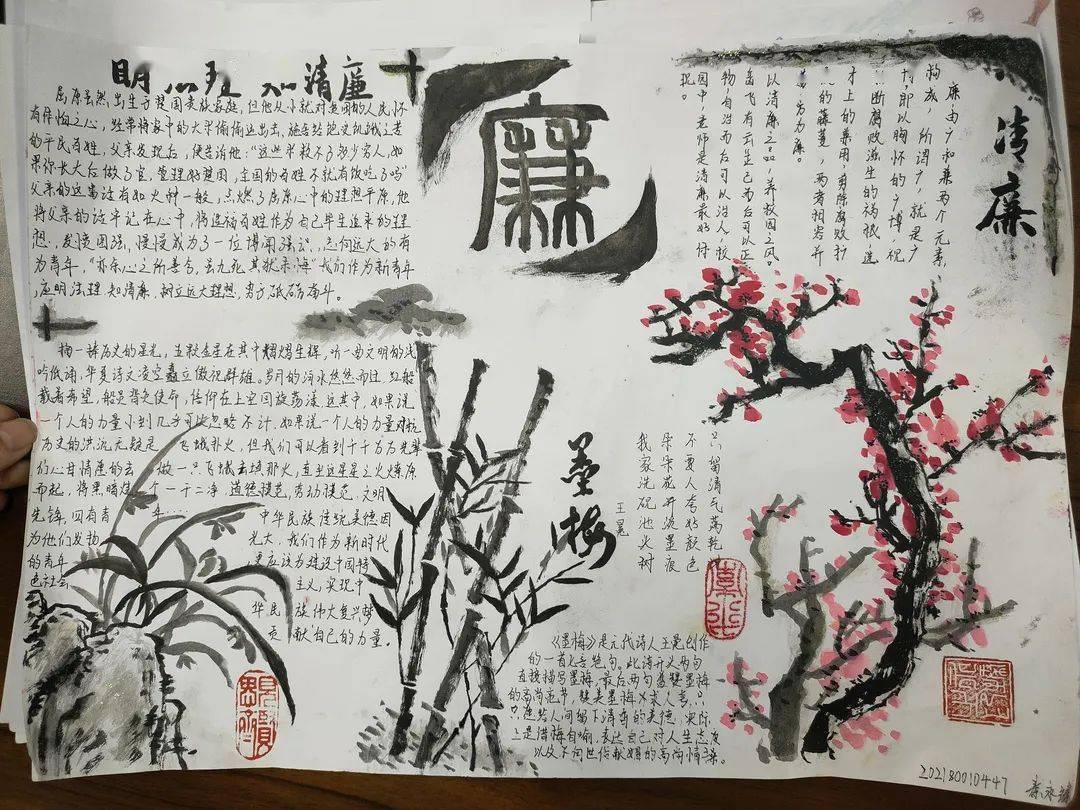 明 心 理 知 清 廉
屈原虽然出生于楚国贵族家庭，但他从小就对楚国的人民怀
有怜悯之心，经常将家中的大米偷偷运出去，施舍给饱受饥饿之苦
的平民百姓，父亲发现后，便告诉他：“这些米救不了多少穷人，如
果你长大后做了官，管理好楚国，全国的百姓不就有饭吃了吗”
父亲的这番话有如火种一般，点燃了屈原心中的理想平原，他
将父亲的话牢记在心中，将造福百姓作为自己毕生追求的理
想，发愤图强，慢慢成为了一位博闻强识，志向远大的有
为青年，“亦余心之所善兮，虽九死其犹未悔”我们作为新青年
，应明法理，知清廉，树立远大理想，努力砥砺奋斗。
廉
清廉
廉由广和兼两个元素，
构成，所谓广，就是广
才上的兼用，剪除腐败
以清廉之品，养校园之风，
物，自洁而后可以洁人，校
园中，老师是清廉最好体
现。
摘一捧历史的星光，五彩金星在其中熠熠生辉，听一曲文明的浅
吟低诵，华夏诗文凌空矗立傲视群雄。岁月的河水悠悠而过，红船
载着希望，船是背负使命，信仰在上空回旋荡漾，这其中，如果说
一个人的力量小到几乎可以忽略不计，如果说一个人的力量对抗
历史的洪流无疑是 飞蛾扑火，但我们可以看到千千万万先辈
们心甘情愿的去 做一只飞蛾去扑那火，直至这星星之火燎原
而起，将黑暗烧 个一干二净 道德模范，劳动模范，文明
先锋，四有青 年…
中华民族传统美德因
为他们发扬 光大，我们作为新时代
的青年 更应该为建设中国特
色社会 主义，实现中
华民 族伟大复兴梦
贡 献自己的力量。
墨梅
王冕
我家洗砚池头树
朵朵花开淡墨痕
不要人夸好颜色
只留清气满乾
《墨梅》是元代诗人王冕创作
的一首七言绝句。此诗开头两句
直接描写墨梅，最后两句盛赞墨梅
的高尚气节，赞美墨梅不求人夸，
只愿给人间留下清香的美德，实际
上是借梅自喻，表达自己对人生态度
以及不向世俗献媚的高尚情操。
202180010447